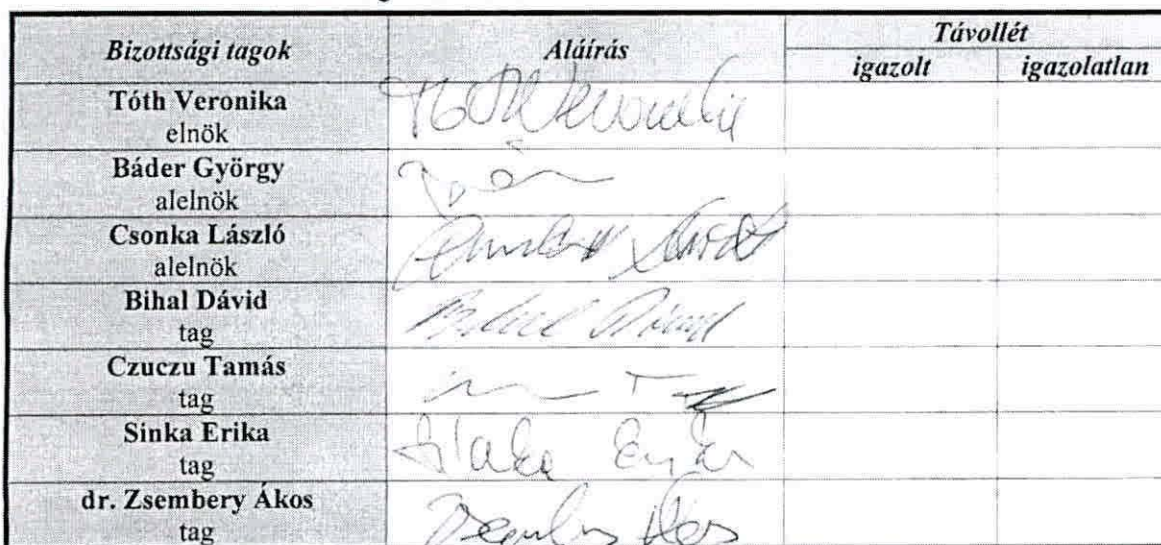 Bizottsági tagok Aláírás Távollét
igazolt igazolatlan
Tóth Veronika Tóth Veronika
elnök
Báder György
alelnök
Csonka László
alelnök
Bihal Dávid Bihal Dávid
tag
Czuczu Tamás
tag
Sinka Erika Sinka Erika
tag
dr. Zsembery Ákos Zsembery Ákos
tag